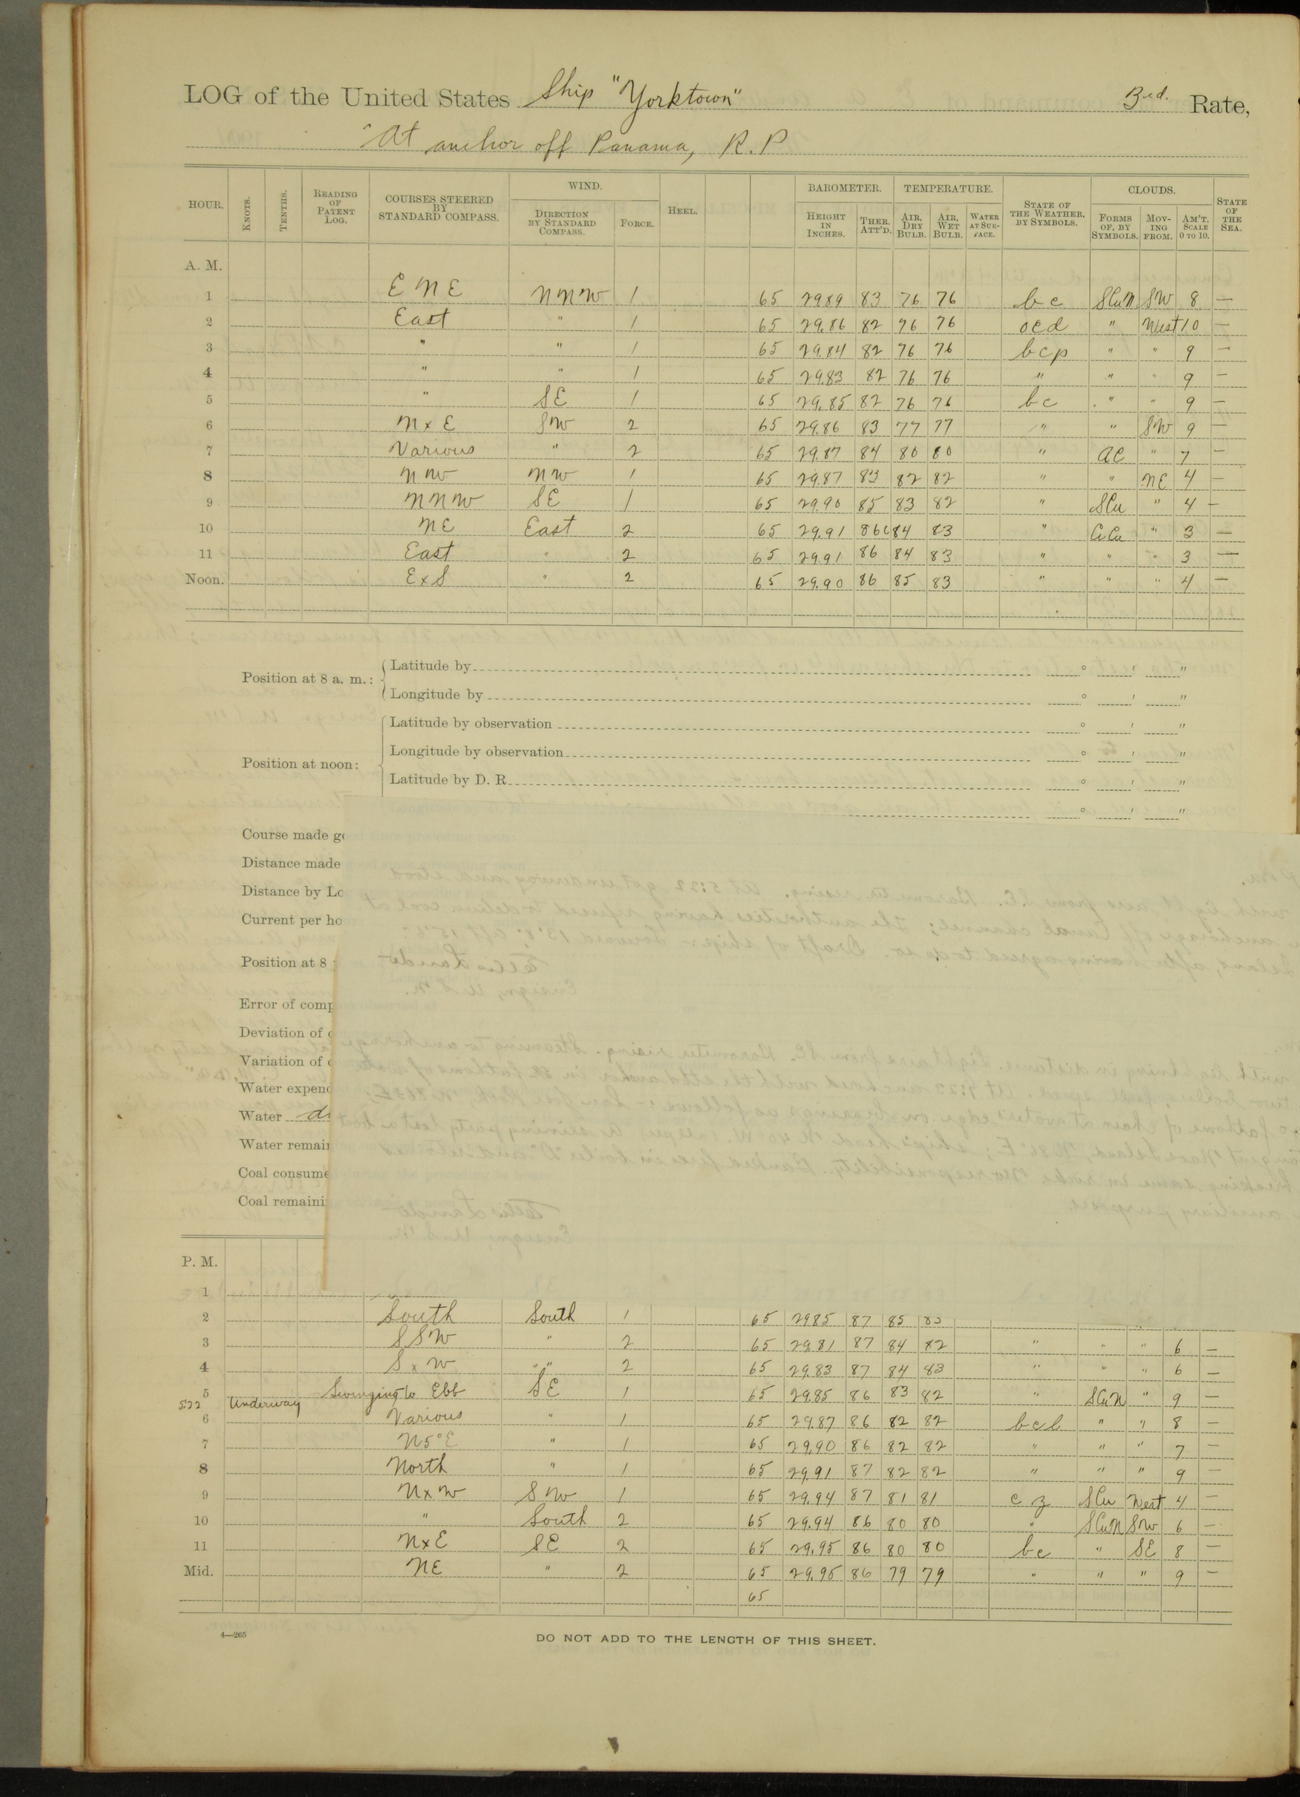 LOG of the United States Ship "Yorktown" 3rd. Rate,
At anchor off Panama, R.P
HOUR. KNOTS. TENTHS. READING OF PATENT LOG. COURSES STEERED BY STANDARD COMPASS. WIND. DIRECTION BY STANDARD COMPASS. FORCE. HEEL. BAROMETER. HEIGHT IN INCHES. THER. ATT'D. TEMPERATURE. AIR, DRY BULB. AIR, WET BULB. WATER AT SURFACE. STATE OF THE WEATHER, BY SYMBOLS. CLOUDS. FORMS OF, BY SYMBOLS. MOVING FROM. AM'T. SCALE 0 TO 10. STATE OF THE SEA.
A. M.
1 E N E NNW 1 65 29.89 83 76 76 bc SCuN SW 8 —
2 East " 1 65 29.86 82 76 76 ocd " West 10 —
3 " " 1 65 29.84 82 76 76 bcp " " 9 —
4 " " 1 65 29.83 82 76 76 " " " 9 —
5 " SE 1 65 29.85 82 76 76 bc " " 9 —
6 N x E SW 2 65 29.86 83 77 77 " " SW 9 —
7 Various " 2 65 29.87 84 80 80 " AC " 7 —
8 NW NW 1 65 29.87 83 82 82 " " NE 4 —
9 NNW SE 1 65 29.90 85 83 82 " SCu " 4 —
10 NE East 2 65 29.91 86 84 83 " CiCu " 3 —
11 East " 2 65 29.91 86 84 83 " " " 3 —
Noon. E x S " 2 65 29.90 86 85 83 " " " 4 —
Position at 8 a. m.: Latitude by ° ′ ″
Longitude by ° ′ ″
Latitude by observation ° ′ ″
Longitude by observation ° ′ ″
Position at noon:
Latitude by D. R ° ′ ″
° ′ ″
Course made
Distance made
Distance by Lo
Current per ho
Position at 8
Error of comp
Deviation of
Variation of
Water expend
Water
Water remai
Coal consume
Coal remaini
P. M.
1
2 South South 1 65 29.85 87 85 83
3 SSW " 2 65 29.81 87 84 82 " " " 6 —
4 S x W " " 2 65 29.83 87 84 83 " " " 6 —
5 Swinging to Ebb SE 1 65 29.85 86 83 82 " SCuN " 9 —
5:22 Underway
6 Various " 1 65 29.87 86 82 82 bcl " " 8 —
7 N5°E " 1 65 29.90 86 82 82 " " " 7 —
8 North " 1 65 29.91 87 82 82 " " " 9 —
9 N x W SW 1 65 29.94 87 81 81 c z SCu West 4 —
10 " South 2 65 29.94 86 80 80 " SCuN SW 6 —
11 N x E SE 2 65 29.95 86 80 80 bc " SE 8 —
Mid. NE " 2 65 29.95 86 79 79 " " " 9 —
65
4—265
DO NOT ADD TO THE LENGTH OF THIS SHEET.